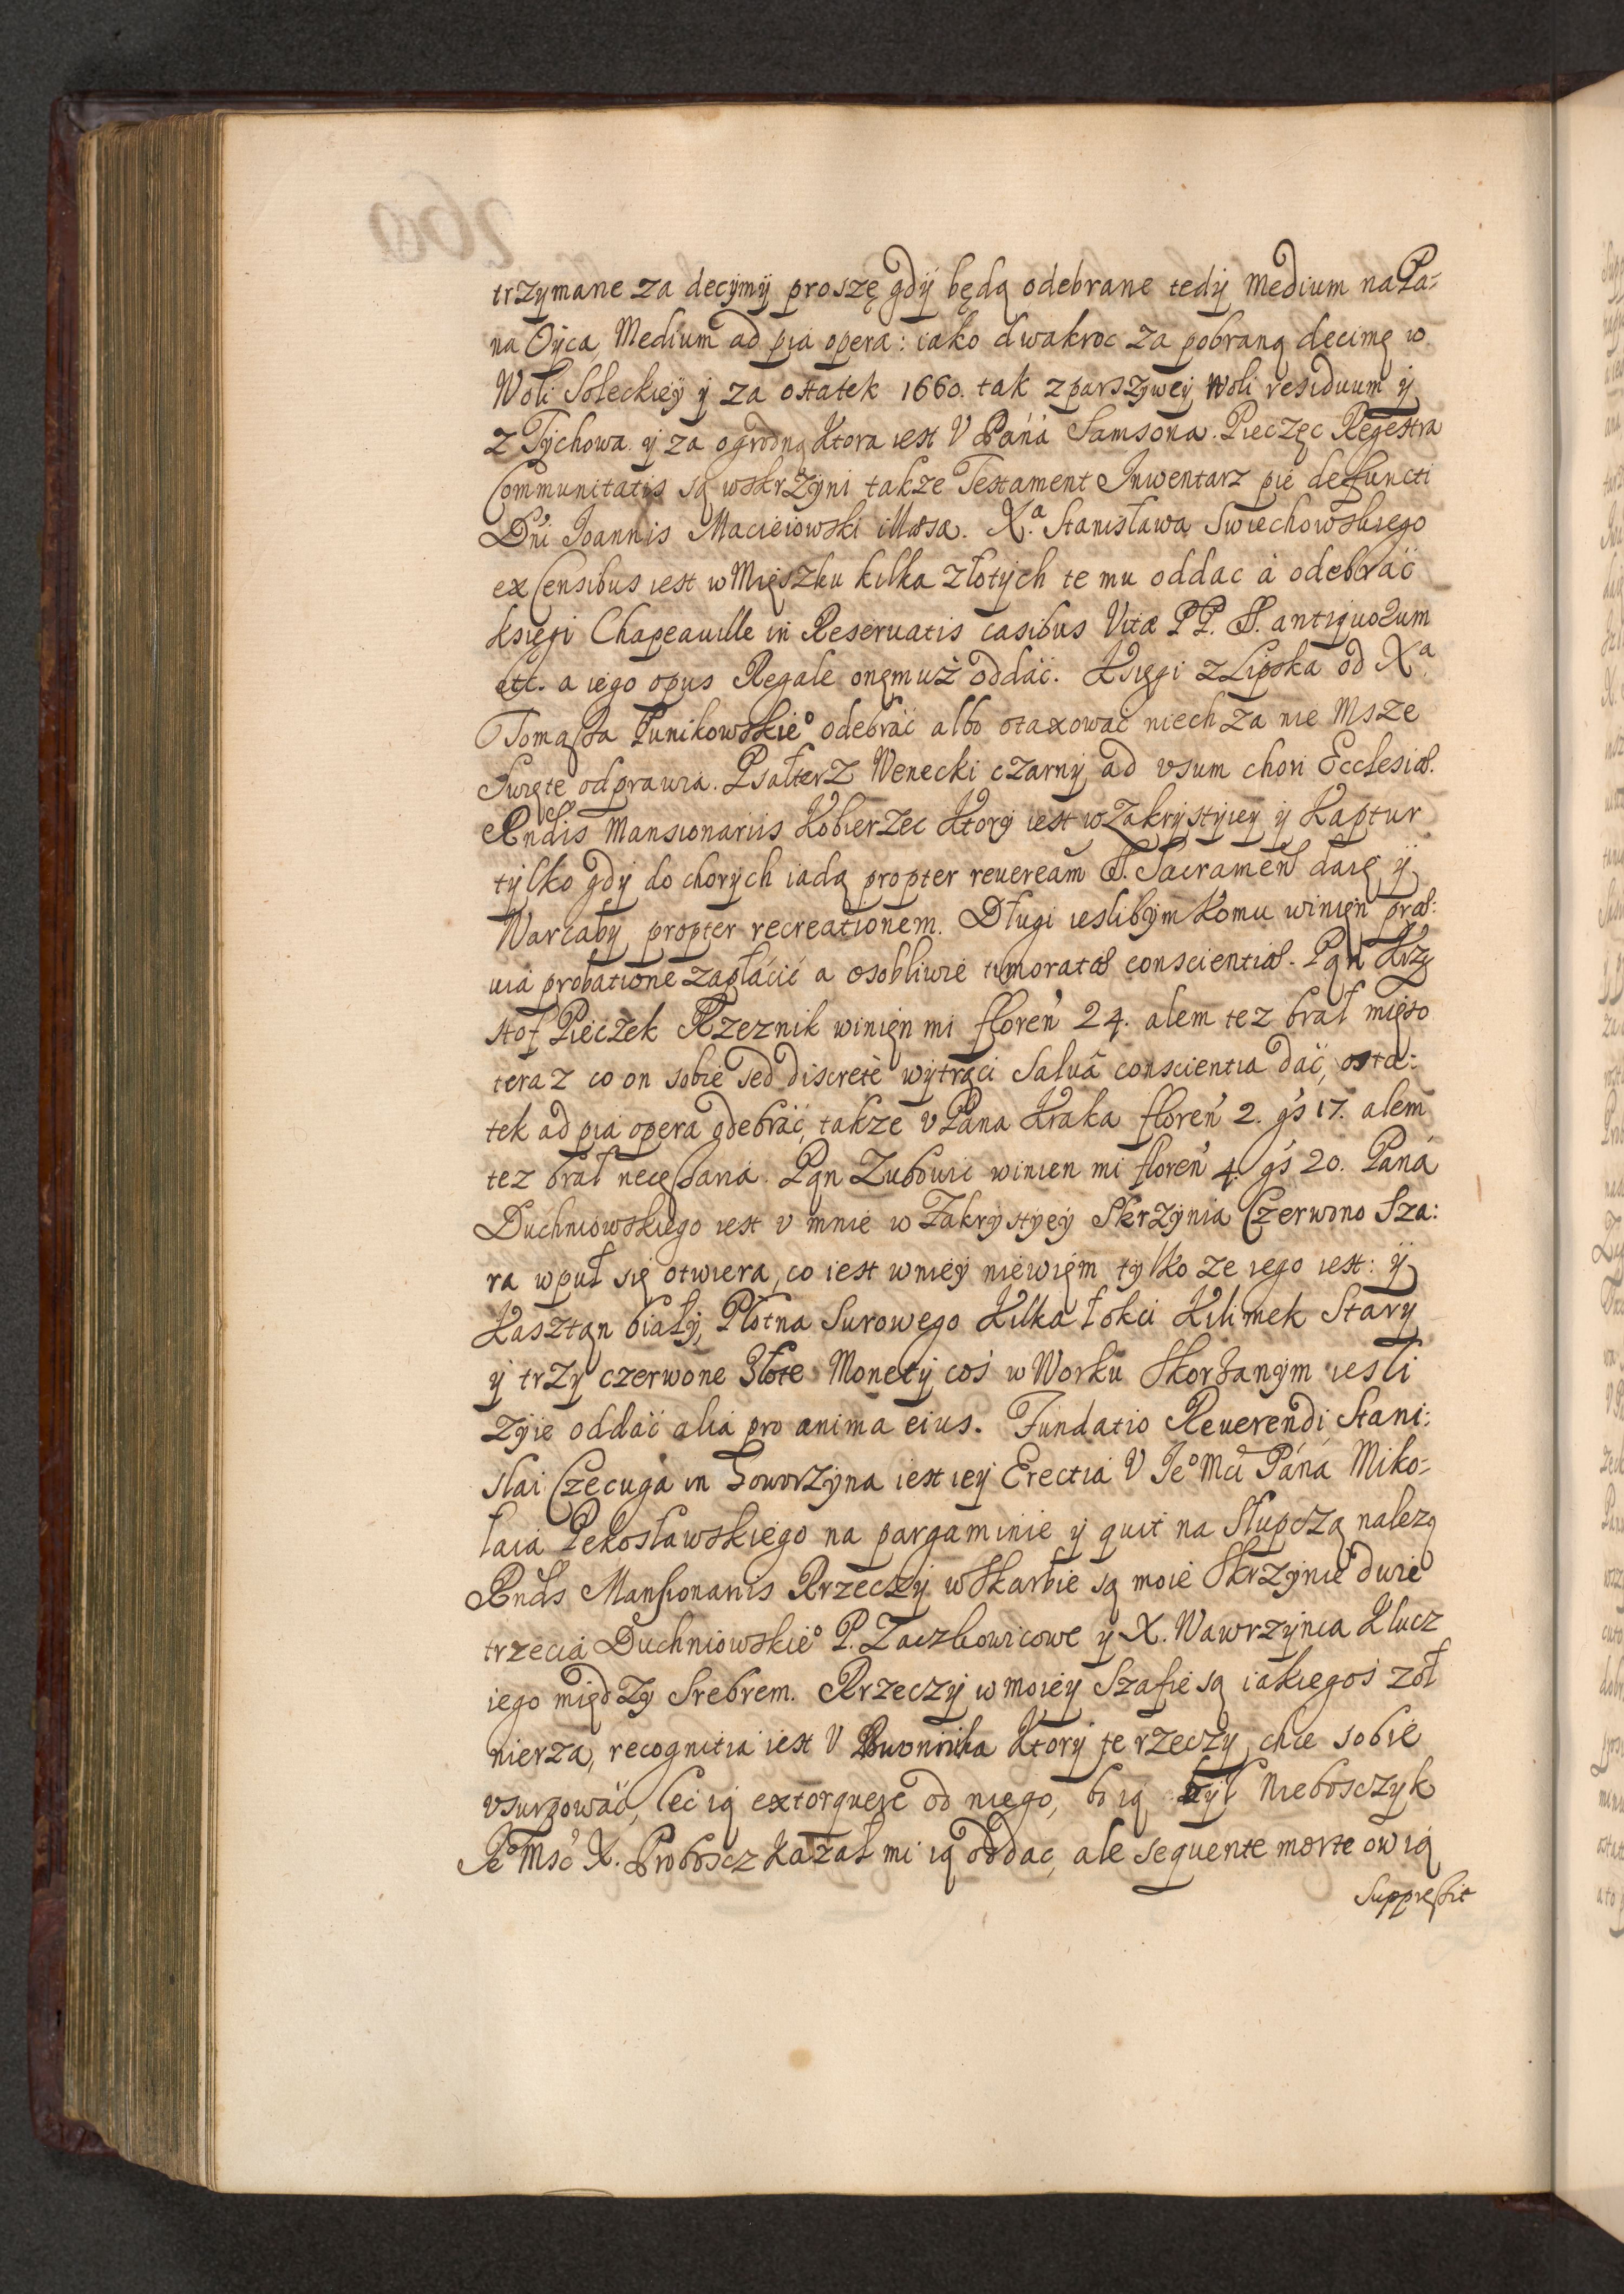 trzymane za decymÿ proszę gdÿ będą odebrane tedÿ Medium na Pa-
na Oÿca, Medium ad pia opera: iako dwakroc za pobraną decimę w
Woli Soleckieÿ ÿ za ostatek 1660. tak z parszÿweÿ Woli residuum ÿ
z Tÿchowa ÿ za ogrodną Ktora iest V Páná Samsona. Pieczęc Regestra
Communitatis są wskrzÿni takze Testament Inwentarz pie defuncti
Dni Joannis Macieiowski . Xa. Stanisława Swiechowskiego
ex Censibus iest w Mięszku kilka złotÿch te mu oddac à odebrać
księgi Chapeauille in Reseruatis casibus Vitæ PP. SS. antiquorum
ett. a iego opus Regale onemuż oddać. Księgi z Lipska od Xa.
Tomasza Lunikowskieo odebrać albo otaxować niech za nie Msze
Swięte odprawia. Psałterz Wenecki czarnÿ ad vsum chori Ecclesiæ.
Rndis Mansionariis Kobierzec Ktorÿ iest w Zakrÿstÿieÿ ÿ Kaptur
tÿlko gdÿ do chorÿch iadą propter reuereām SS. Sacramen daię ÿ
Warcabÿ propter recreationem. Długi ieslibÿm komu winien præ:
uia probatione zapłacić a osobliwie timoratæ conscientiæ. Pan Krzÿ
stof Pieczek Rzeznik winien mi floren 24. alem tez brał mięso
teraz co on sobie sed discretè wÿtrąci Saluâ conscientia dać, osta:
tek ad pia opera odebrać, takze v Pana Kraka floren 2. gs 17. alem
tez brał necessaria. Pan Zubowic winien mi floren 4. gs 20. Paná
Duchniowskiego iest v mnie w Zakrÿstÿeÿ Skrzÿnia Czerwono Sza:
ra wpuł się otwiera, co iest wnieÿ niewiem tÿlko ze iego iest: ÿ
Kasztan białÿ, Płotna Surowego Kilka łokci Kilimek Starÿ
ÿ trzÿ czerwone Złote Monetÿ coś w Worku Skorzanÿm iesli
zÿie oddać alia pro anima eius. Fundatio Reuerendi Stani:
slai Czecuga in Goworzÿna iest ieÿ Erectia V Jeo Mci Páná Miko-
łaia Pękosławskiego na pargaminie ÿ quit na Słupczą nalezą
Rndis Mansionariis Rzeczÿ w Skarbie są moie Skrzÿnie dwie
trzecia Duchniowskieo P. Zaczkowicowe ÿ X. Wawrzÿnca Klucz
iego międzÿ Srebrem. Rzeczÿ w moieÿ Szafie są iakiegoś zoł
nierza, recognitia iest V Ktorÿ te rzeczÿ chce sobie
vsurpować, lec ią extorquere od niego, bo ią bÿł Nieboszczÿk
Jeo Msć X. Proboscz Kazał mi ią oddac, ale sequente morte ow ią
Suppressit